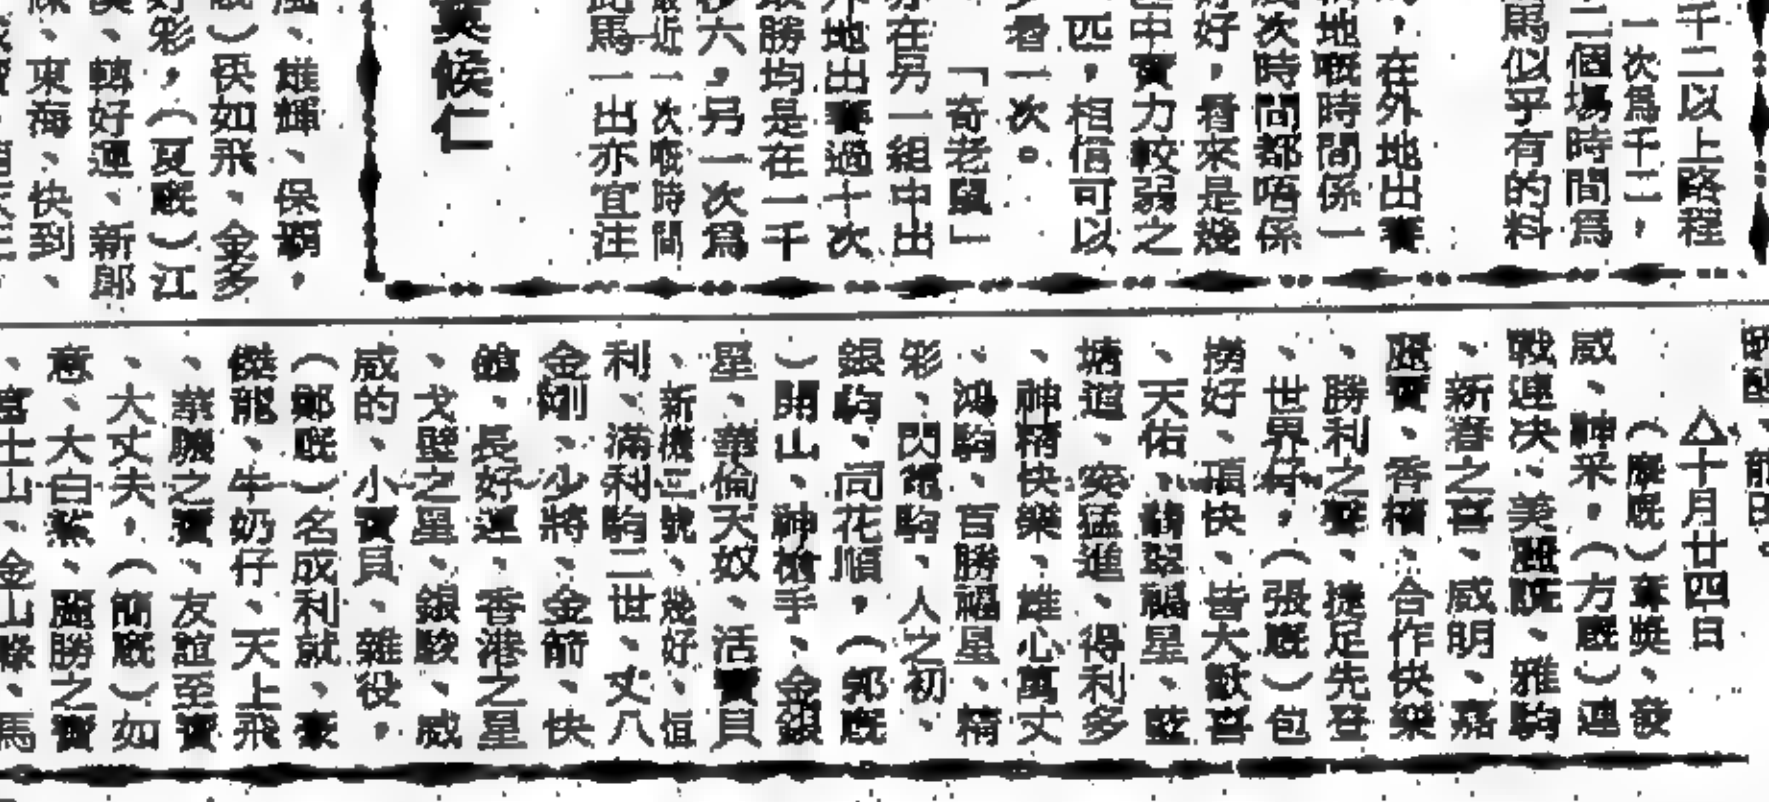 千二以上路程
一次為千二，
二個場時間為
馬似乎有的料
，在外地出賽
地嘅時間係一
次時間都唔係
好，看來是幾
中實力較弱之
匹，相信可以
看一次。
「奇老鼠」
亦在另一組中出
外地出賽過十次
勝均是在一千
秒六，另一次為
最近一次嘅時間
此馬一出亦宜注
候仁
、雄輝、保
嘅）快如飛、金多
好彩，（夏嘅）江
、轉好運、新郎
、東海、快到、
△十月廿四日
（摩嘅）奪獎、發
威、神采，（方嘅）連
戰連決、美、雅駒
、新春之喜、威明、嘉
寶、香檳、合作快樂
、勝利之聲、捷足先登
、世界仔，（張嘅）包
撈好、項快、皆大歡喜
、天佑、翡翠福星、藍
塘道、突猛進、得利多
、神精快樂、雄心萬丈
、鴻駒、百勝福星、精
彩、閃電駒、人之初、
銀駒、同花順，（郭嘅
）開山、神槍手、金銀
星、華倫天奴、活寶貝
、新機三號、幾好、恒
利、滿利駒二世、丈八
金剛、少將、金箭、快
艙、長好運、香港之星
、戈壁之星、銀駿、威
威的、小寶貝、雜役，
（鄭嘅）名成利就、豪
傑龍、牛奶仔、天上飛
、華騰之寶、友誼至寶
、大丈夫，（簡嘅）如
意、大白鯊、麗勝之寶
、富士山、金山、馬